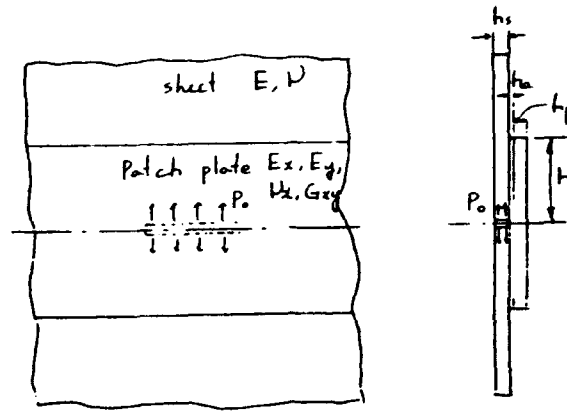 sheet E, ν
Patch plate Ex, Ey,
νx, Gxy
Po
hs
ha
hp
H
Po